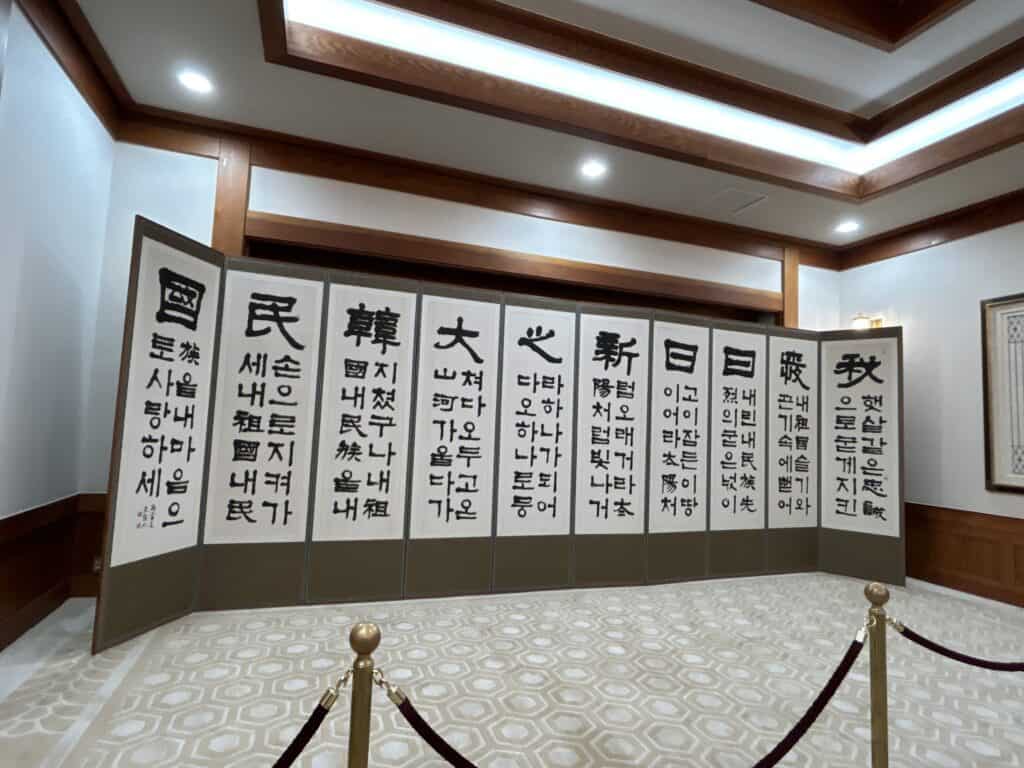 秋
햇살같은忠誠
으로굳게지키
내祖國슬기와
끈기속에벋어
日
내린내民族先
烈의굳은넋이
日
고이잠든이땅
이어라太陽처
新
럼오래거라太
陽처럼빛나거
之
라하나가되어
다오하나로뭉
大
쳐다오두고온
山河가울다가
韓
지쳤구나내祖
國내民族을내
民
손으로지켜가
세내祖國내民
國
族을내마음으
로사랑하세